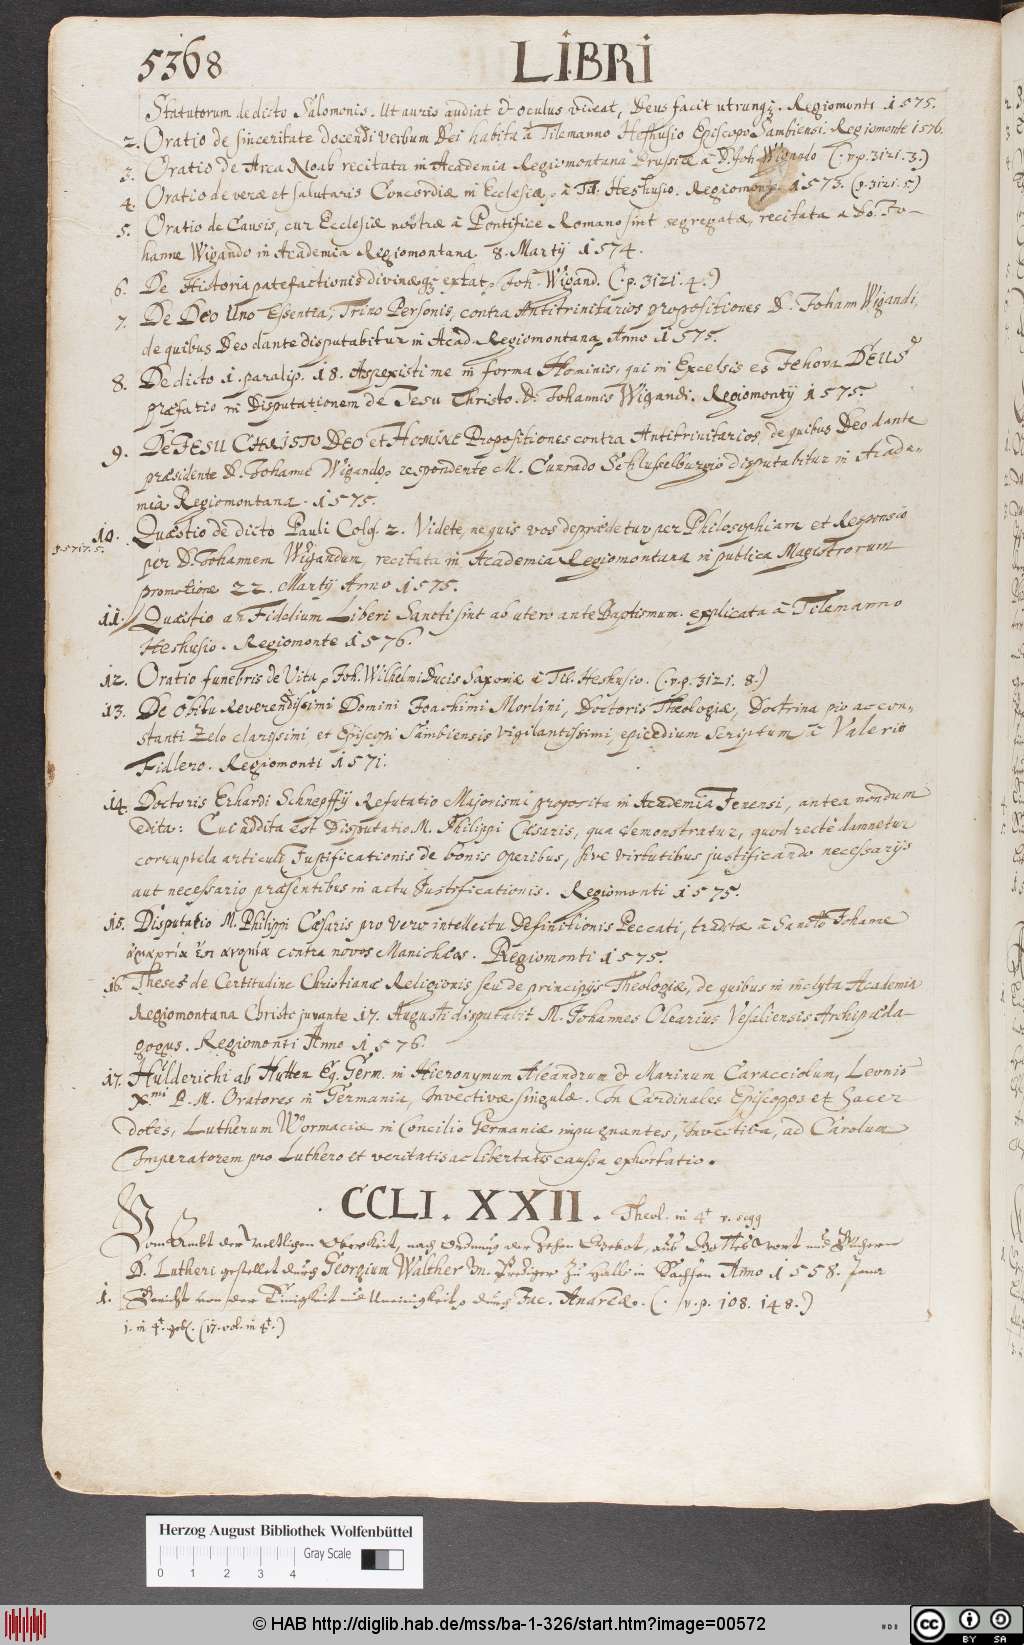 5368 LIBRI
Statutorum de dicto Salomonis. Ut auris audiat & oculus videat, Deus facit utrumq;. Regiomonti 1575.
2. Oratio de sinceritate docendi verbum Dei habita à Tilemanno Heshusio Episcopo Sambiensi. Regiomonte 1576.
3. Oratio de Arca Noah recitata in Academia Regiomontana Prussiæ à D. Joh. Wigando (: v. p. 3121. 3.)
4. Oratio de veræ et salutaris Concordiæ in Ecclesiæ, à Til. Heshusio. Regiomont. 1573. (p. 3121. 5.)
5. Oratio de Causis, cur Ecclesiæ nostræ à Pontifice Romano sint segregatæ, recitata a Do. Jo-
hanne Wigando in Academia Regiomontana 8. Martij 1574.
6. De Historia patefactionis divinæ q; extat, Joh. Wigand. (: p. 3121. 4.)
7. De Deo Uno Essentia, Trino Personis, contra Antitrinitarios propositiones D. Joham Wigandi,
de quibus Deo dante disputabitur in Acad. Regiomontana, Anno 1575.
8. De dicto 1. paralip. 18. Aspexisti me in forma Hominis, qui in Excelsis es Jehova DEUS
præfatio in Disputationem de Jesu Christo. D. Johannis Wigandi. Regiomontij 1575.
9. De JESU CHRISTO DEO et Homine Propositiones contra Antitrinitarios, de quibus Deo dante
præsidente D. Johanne Wigando, respondente M. Cunrado Schlusselburgio disputabitur in Acade-
mia Regiomontana. 1575.
10. Quæstio de dicto Pauli Colos. 2. Videte, ne quis vos deprædetur per Philosophiam et Responsio
per D. Johannem Wigandum, recitata in Academia Regiomontana in publica Magistrorum
promotione 22. Martij Anno 1575.
11. Quæstio an Fidelium Liberi Sancti sint ab utero ante Baptismum. explicata à Tilemanno
Heshusio. Regiomonte 1576.
12. Oratio funebris de Vita, Joh. Wilhelmi Ducis Saxoniæ à Til. Heshusio. (: v. p. 3121. 8.)
13. De Obitu Reverendissimi Domini Joachimi Morlini, Doctoris Theologiæ, Doctrina pio ac con-
stanti Zelo clarissimi et Episcopi Sambiensis vigilantissimi, epicedium scriptum à Valerio
Fidlero. Regiomonti 1571.
14. Doctoris Erhardi Schnepffij Refutatio Majorismi proposita in Academia Jenensi, antea nondum
edita: Cui addita est Disputatio M. Philippi Cæsaris, qua demonstratur, quod rectè damnetur
corruptela articuli Justificationis de bonis operibus, sive virtutibus justificando necessarijs
aut necessario præsentibus in actu Justificationis. Regiomonti 1575.
15. Disputatio M. Philippi Cæsaris pro vero intellectu Definitionis Peccati, tradita à Sancto Johanne
ἁμαρτία ἐστι ἀνομία contra novos Manichæos. Regiomonti 1575.
16. Theses de Certitudine Christianæ Religionis seu de principijs Theologiæ, de quibus in inclyta Academia
Regiomontana Christo juvante 17. Augusti disputabit M. Johannes Olearius Vesaliensis Archipæda-
gogus. Regiomonti Anno 1576.
17. Hulderichi ab Hutten Eq. Germ. in Hieronymum Aleandrum & Marinum Caracciolum, Leonis
Xmi P. M. Oratores in Germania, Invectivæ singulæ. In Cardinales Episcopos et Sacer
dotes, Lutherum Wormaciæ in Concilio Germaniæ impugnantes, Invectiva, ad Carolum
Imperatorem pro Luthero et veritatis ac libertatis caussa exhortatio.
CCLI. XXII. Theol. in 4t
Vom Ambt der weltlichen Oberkeit, nach Ordnung der Zehen Gebot, aus Gottes wort und Büchern
D. Lutheri gestellet durch Georgium Walther Prediger zu Halle in Sachsen Anno 1558.
1. Bericht von der Einigkeit und Uneinigkeit, durch Jac. Andreæ. (: v. p. 108. 148.)
Herzog August Bibliothek Wolfenbüttel
0 1 2 3 4 Gray Scale
© HAB http://diglib.hab.de/mss/ba-1-326/start.htm?image=00572
cc BY SA